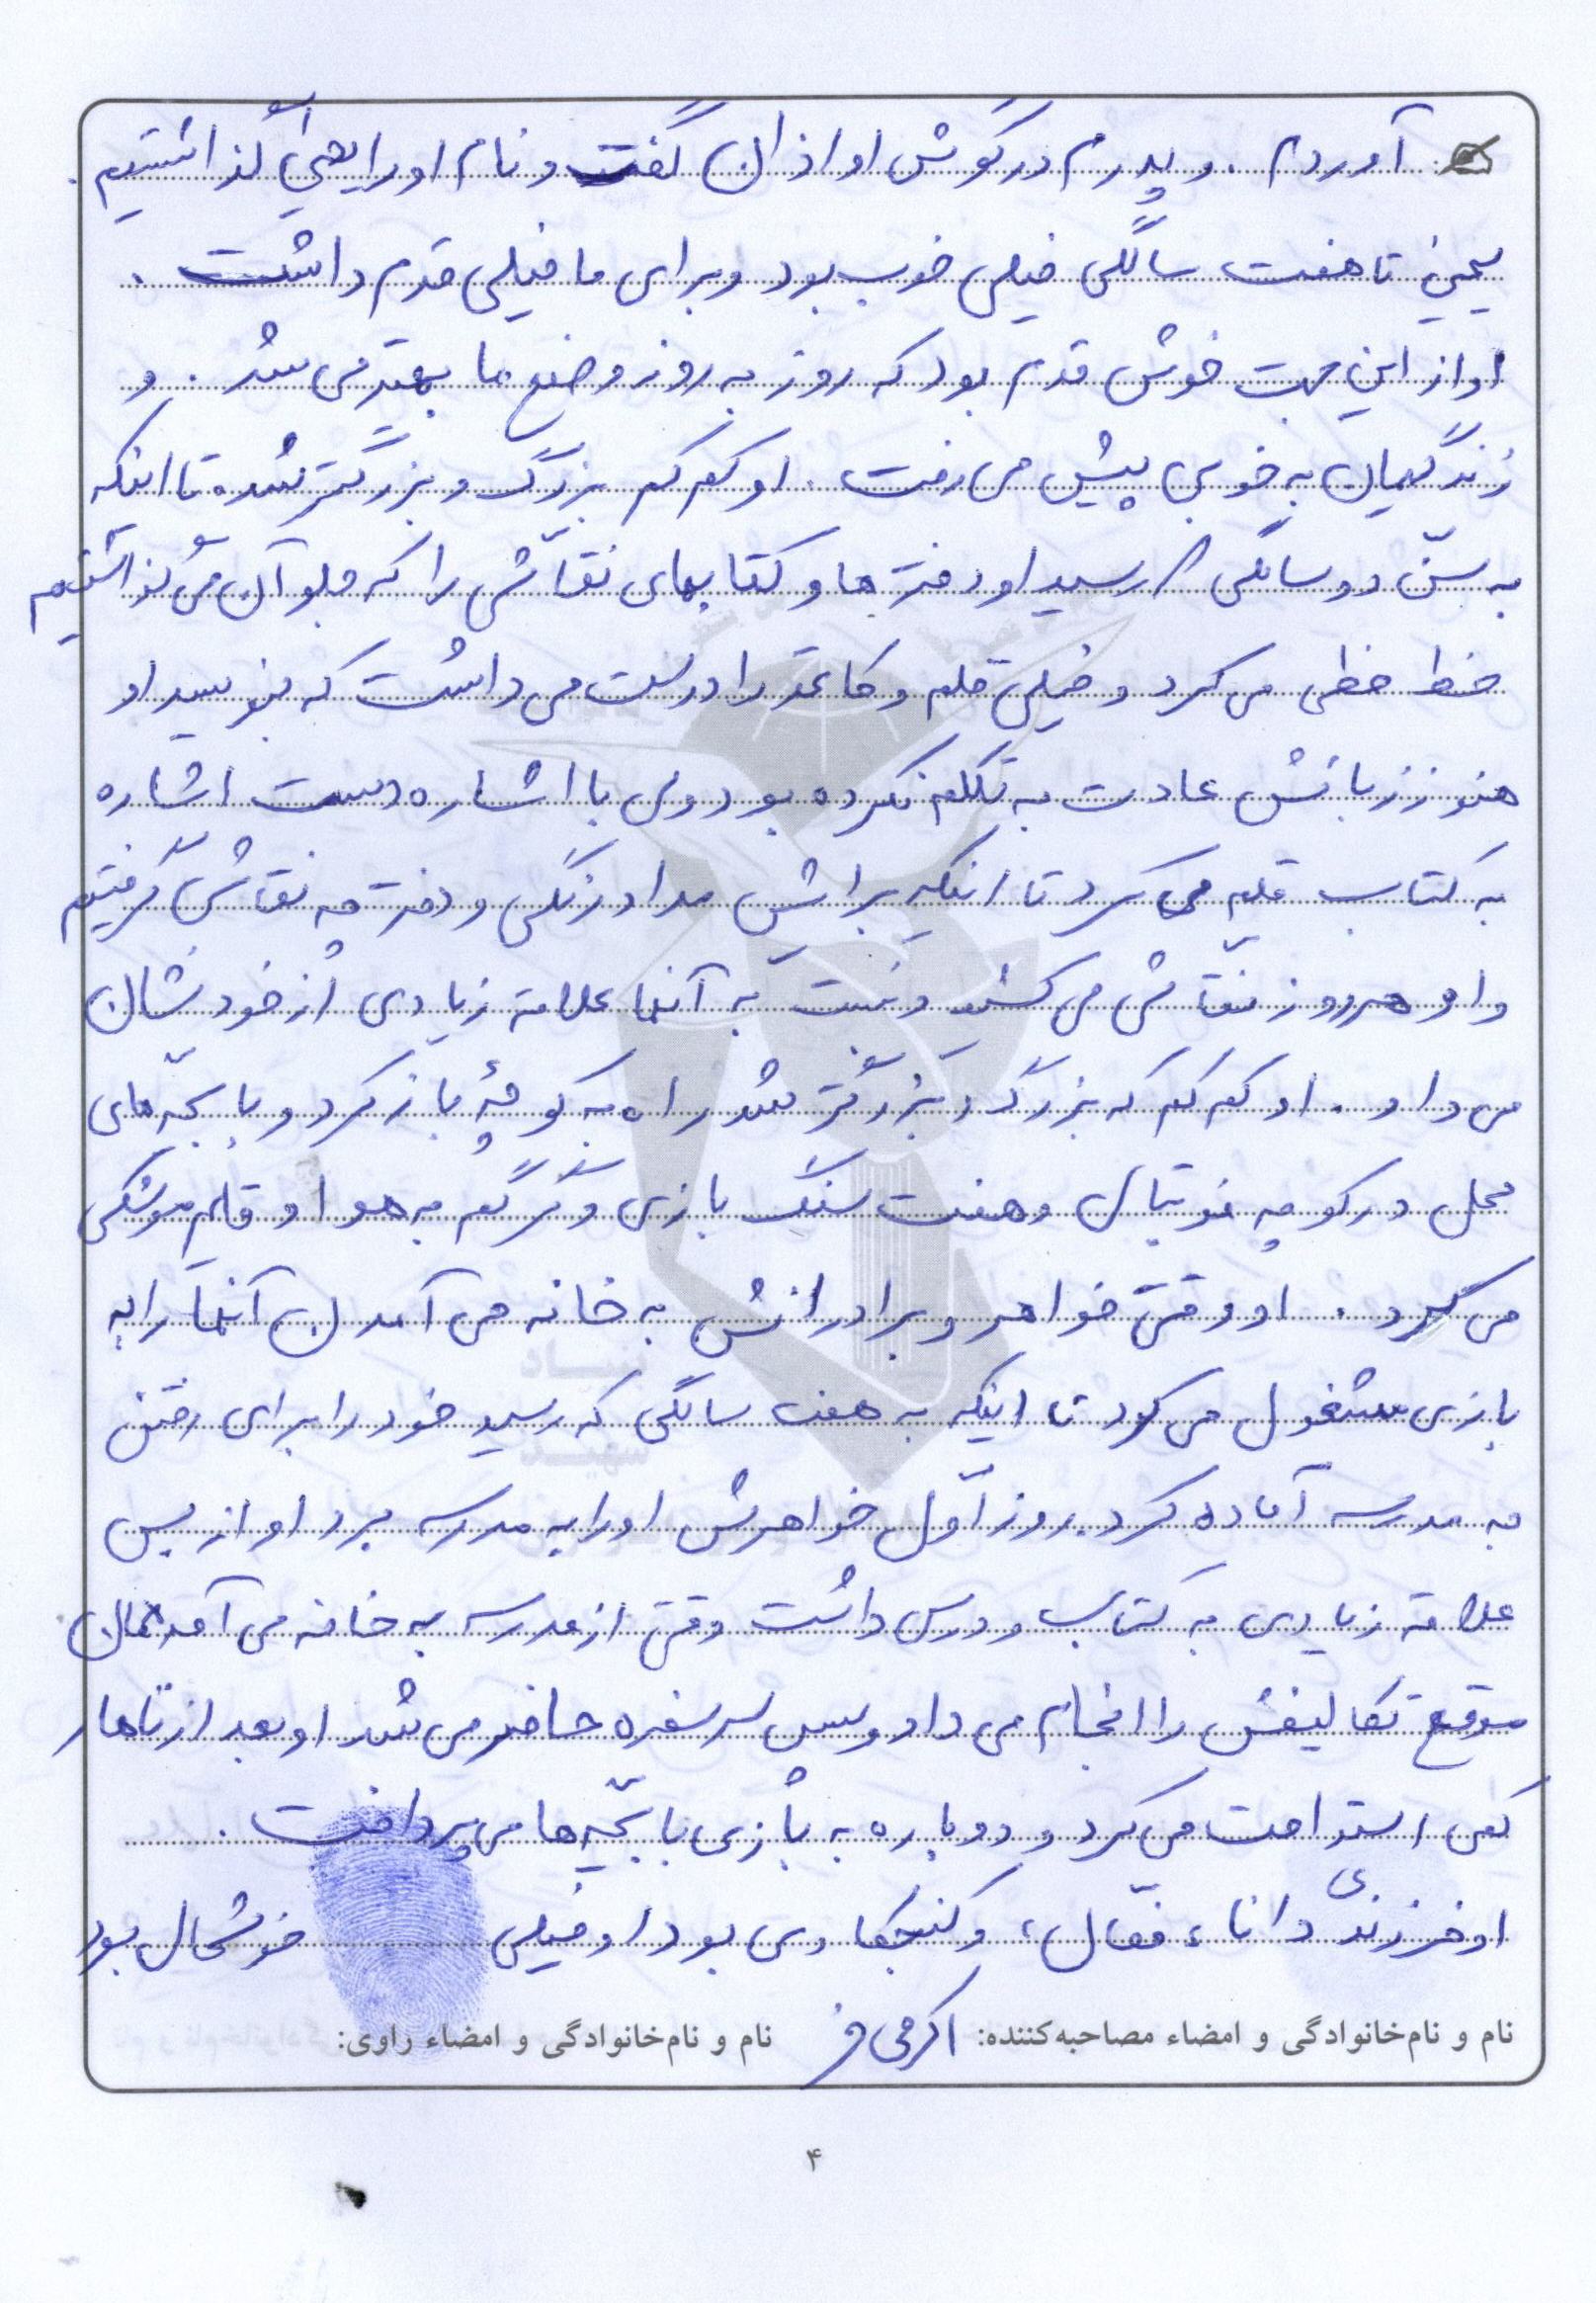 آوردم . و پدرم در گوش او اذان گفت و نام او را یحیی گذاشتیم .
یحیی تا هفت سالگی خیلی خوب بود و برای ما خیلی قدم داشت .
او از این جهت خوش قدم بود که روز به روز وضع ما بهتر می شد . و
زندگیمان به خوبی پیش می رفت . او کم کم بزرگ و بزرگتر شده تا اینکه
به سنّ دو سالگی رسید او دفترها و کتابهای نقّاشی را که جلو آن می گذاشتیم
خط خطی می کرد و خیلی قلم و کاغذ را دوست می داشت که بنویسد او
هنوز زبانش عادت به تکلم نکرده بود ولی با اشاره دست اشاره
به کتاب قلم می کرد تا اینکه برایش مداد رنگی و دفترچه نقاشی گرفتیم
و او هر روز نقّاشی می کشید و نسبت به آنها علاقه زیادی از خود نشان
می داد . او کم کم که بزرگ و بزرگتر شد راه به کوچه باز کرد و با بچّه های
محل در کوچه فوتبال و هفت سنگ بازی و گرگم به هوا و قایم موشکی
می کرد . او وقتی خواهر و برادرانش به خانه می آمدن آنها را به
بازی مشغول می کرد تا اینکه به هفت سالگی که رسید خود را برای رفتن
به مدرسه آماده کرد . روز اوّل خواهرش او را به مدرسه برد او از بس
علاقه زیادی به کتاب و درس داشت وقتی از مدرسه به خانه می آمد همان
موقع تکالیفش را انجام می داد و سپس سر سفره حاضر می شد او بعد از ناهار
کمی استراحت می کرد و دوباره به بازی با بچّه ها می پرداخت .
او فرزندی دانا ، فعّال ، و کنجکاوی بود او خیلی خوشحال بود
نام و نام‌خانوادگی و امضاء مصاحبه‌کننده: اکرمی فر نام و نام‌خانوادگی و امضاء راوی:
۴